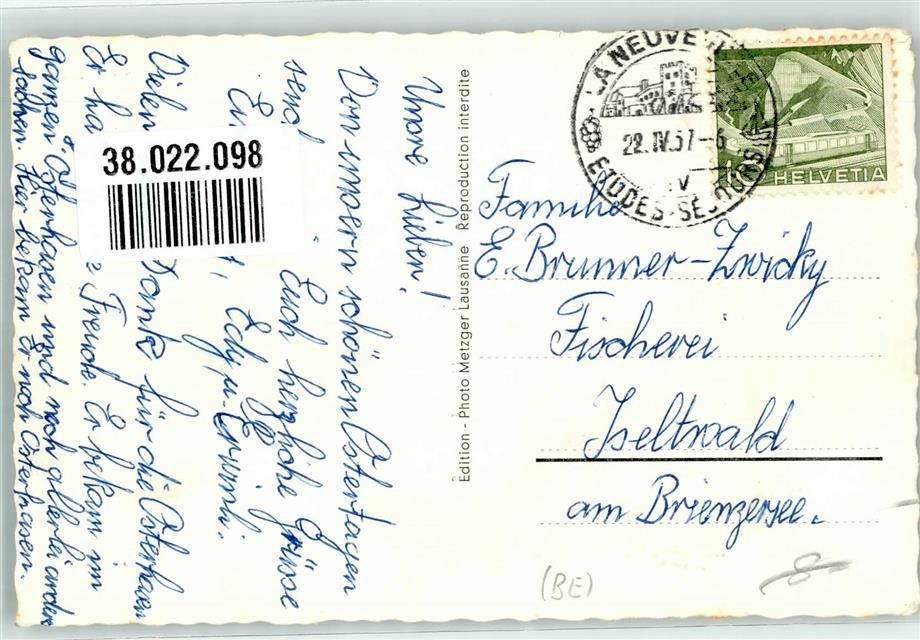 Unsre Lieben!
Von unsern schönen Ostertagen
send Euch herzliche Grüsse
Edy u. Erwinli.
Vielen Dank für die Osterhasen
Er ha Freude. Er bekam im
ganzen 8 Osterhasen und noch allerlei andere
Sachen. Hier bekam Er noch Osterhasen.
38.022.098
Edition - Photo Metzger Lausanne Reproduction interdite
LA NEUVEVI
22.IV.57-6
ETUDES-SEJOURS
HELVETIA
Familie
E. Brunner-Zwicky
Fischerei
Iseltwald
am Brienzersee.
(BE)